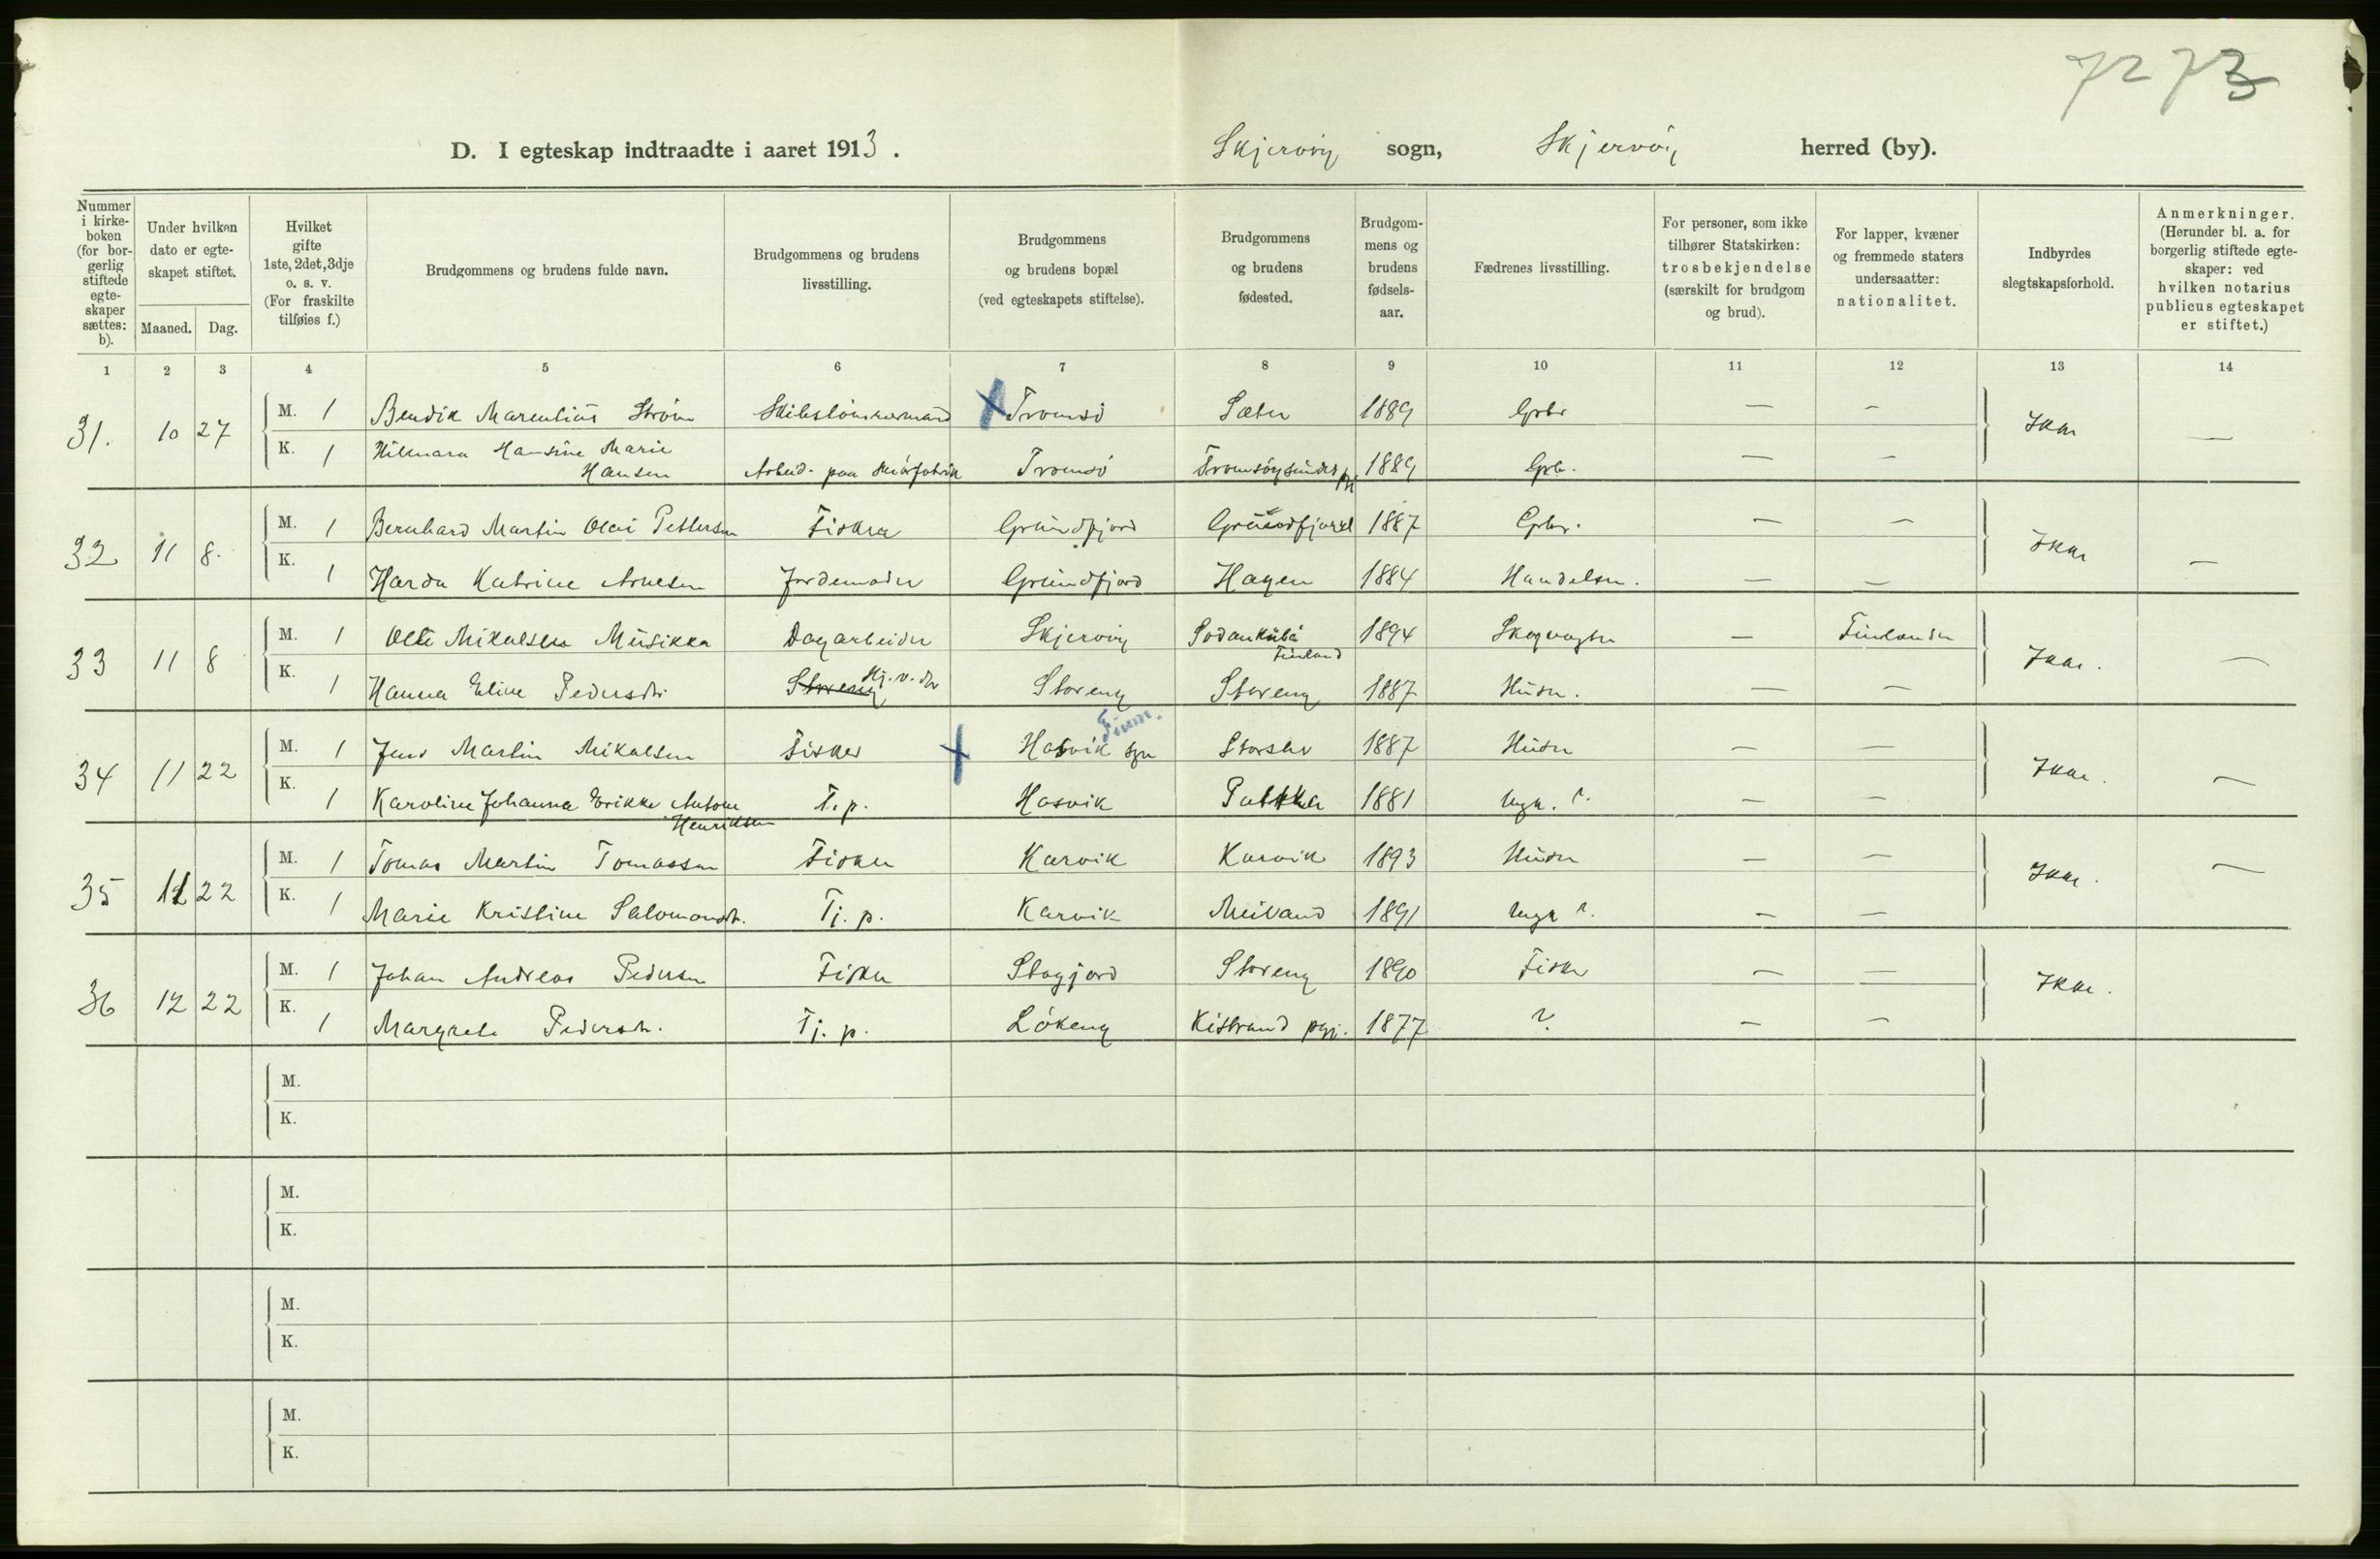 7273
D. I egteskap indtraadte i aaret 1913. Skjervöy sogn, Skjervöy herred (by).
Nummer i kirkeboken (for borgerlig stiftede egteskaper sættes: b).
Under hvilken dato er egteskapet stiftet.
Maaned. Dag.
Hvilket gifte 1ste, 2det, 3dje o. s. v. (For fraskilte tilføies f.)
Brudgommens og brudens fulde navn.
Brudgommens og brudens livsstilling.
Brudgommens og brudens bopæl (ved egteskapets stiftelse).
Brudgommens og brudens fødested.
Brudgommens og brudens fødselsaar.
Fædrenes livsstilling.
For personer, som ikke tilhører Statskirken: trosbekjendelse (særskilt for brudgom og brud).
For lapper, kvæner og fremmede staters undersaatter: nationalitet.
Indbyrdes slegtskapsforhold.
Anmerkninger. (Herunder bl. a. for borgerlig stiftede egteskaper: ved hvilken notarius publicus egteskapet er stiftet.)
1 2 3 4 5 6 7 8 9 10 11 12 13 14
31. 10 27 M. 1 Bendik Marentius Strøm Skibstömmermand Tromsö Sæter 1889 Grbr — — Ikke —
K. 1 Hilmara Hansine Marie Hansen Arbeid. paa Smörfabrik Tromsö Tromsöysundet 1889 Grb. — —
32 11 8. M. 1 Bernhard Martin Olai Pettersen Fisker Grundfjord Grundfjord 1887 Grbr. — — Ikke —
K. 1 Harda Katrine Arnesen Jordemoder Grundfjord Hagen 1884 Handelsm. — —
33 11 8 M. 1 Olli Mikalsen Musikka Dagarbeider Skjervöy Sodankülä Finland 1894 Skogvogter — Finlender Ikke. —
K. 1 Hanna Eline Pedersdtr. Storeng Storeng 1887 Husm. — —
34 11 22 M. 1 Jens Martin Mikalsen Fisker Hasvik sgn Finm. Storslet 1887 Husm — — Ikke. —
K. 1 Karoline Johanna Erikke Antone Henriksen T. p. Hasvik 1881 — —
35 11 22 M. 1 Tomas Martin Tomassen Fisker Karvik Karvik 1893 Husm — — Ikke. —
K. 1 Marie Kristine Salomonsdtr. Tj. p. Karvik Meiland 1891 — —
36 12 22 M. 1 Johan Andreas Pedersen Fisker Storeng 1890 Fisker — — Ikke.
K. 1 Margrete Pedersdtr. Tj. p. Lökeng Kistrand pgj. 1877 ? — —
M.
K.
M.
K.
M.
K.
M.
K.